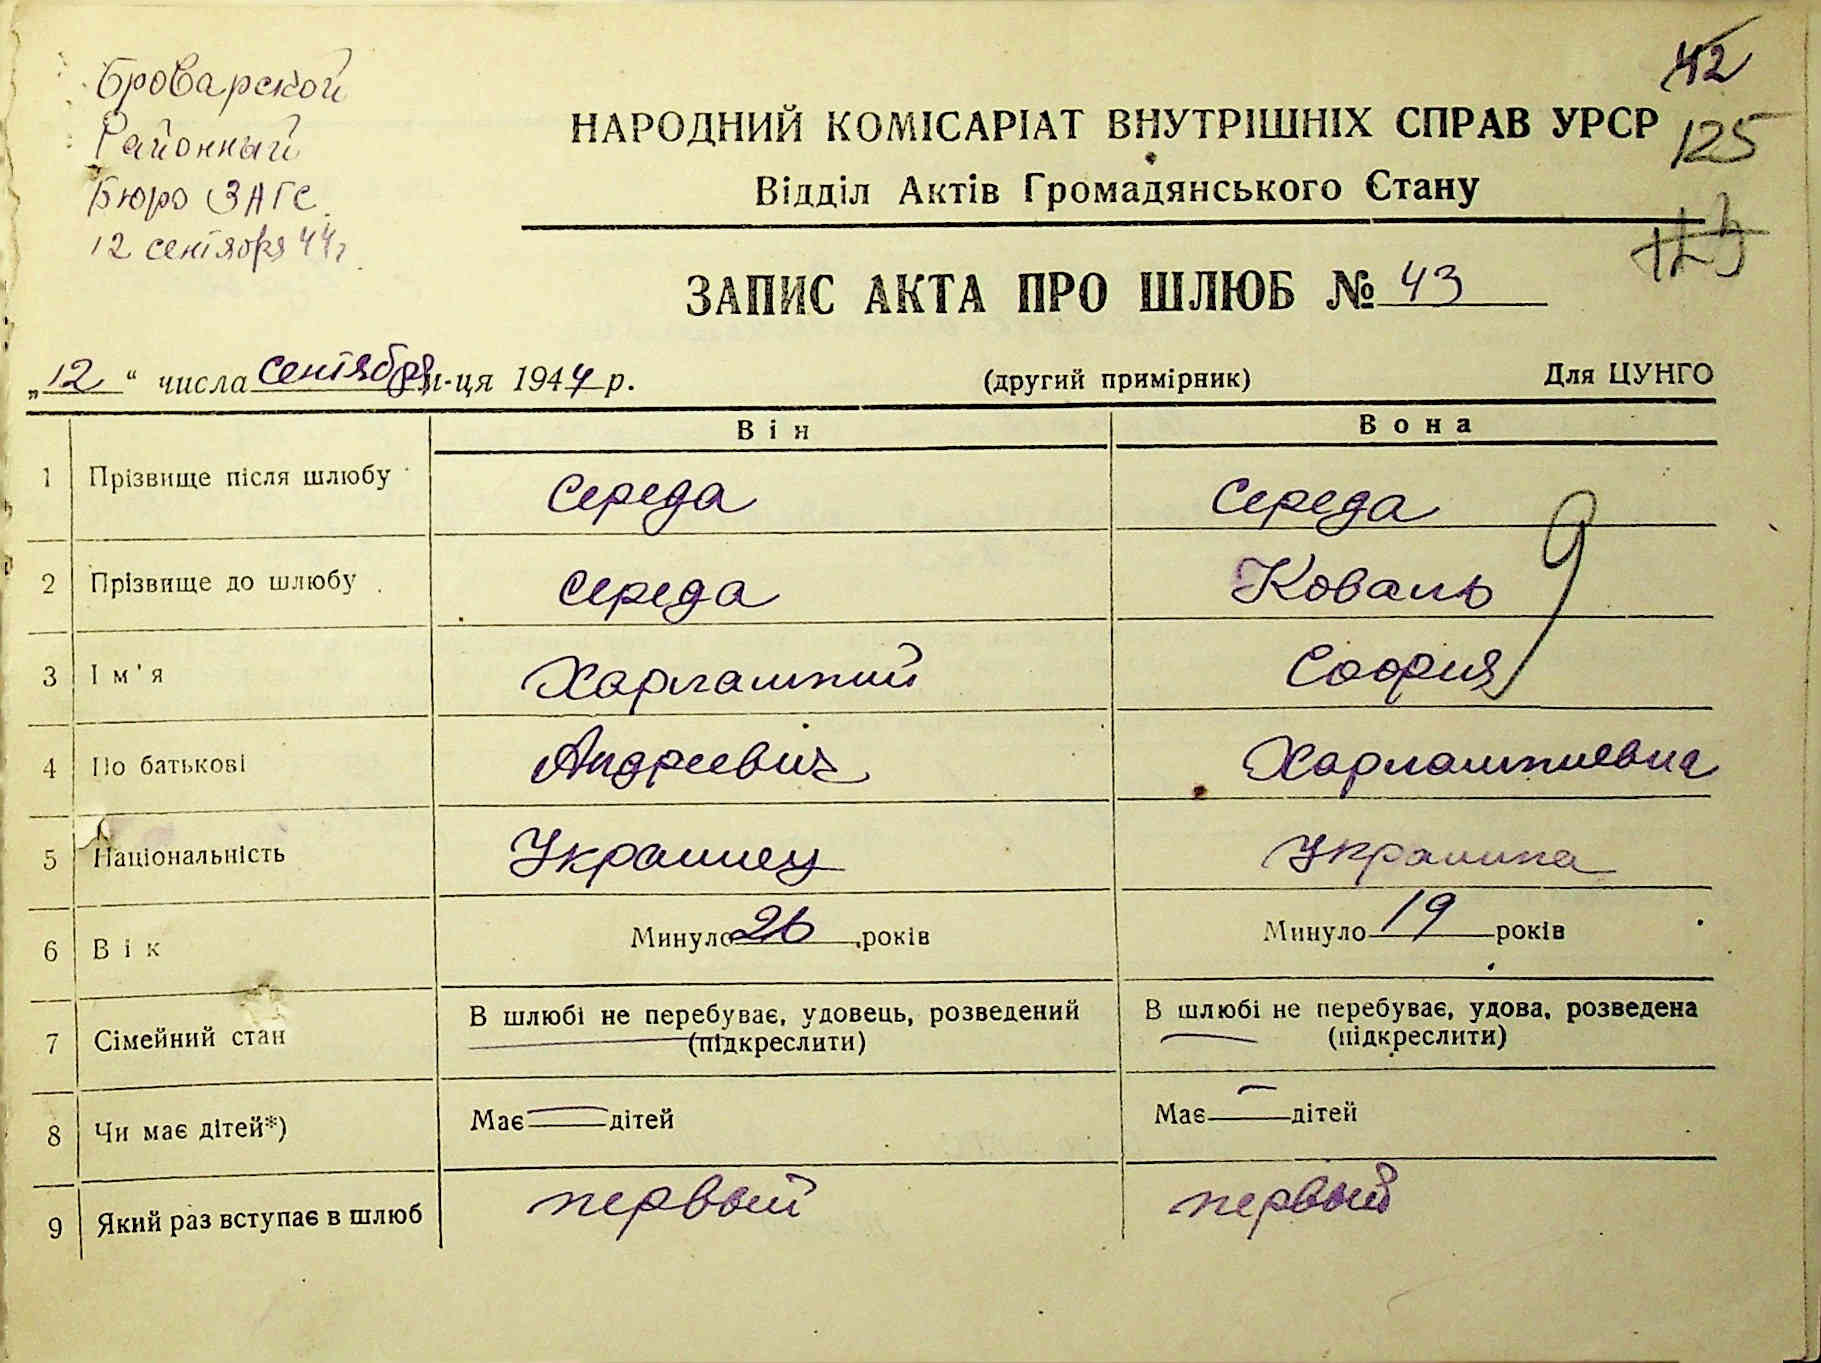 Броварской
Районный
Бюро ЗАГС
12 сентября 44 г.
42
125
123
НАРОДНИЙ КОМІСАРІАТ ВНУТРІШНІХ СПРАВ УРСР
Відділ Актів Громадянського Стану
ЗАПИС АКТА ПРО ШЛЮБ № 43
„12“ числа сентября м-ця 1944 р. (другий примірник) Для ЦУНГО
Він Вона
1 Прізвище після шлюбу Середа Середа
2 Прізвище до шлюбу Середа Коваль
3 Ім'я Харлампий София
4 По батькові Андреевич Харлампиевна
5 Національність Украинец Украинка
6 Вік Минуло 26 років Минуло 19 років
7 Сімейний стан В шлюбі не перебуває, удовець, розведений (підкреслити) В шлюбі не перебуває, удова, розведена (підкреслити)
8 Чи має дітей*) Має — дітей Має — дітей
9 Який раз вступає в шлюб первый первый
9